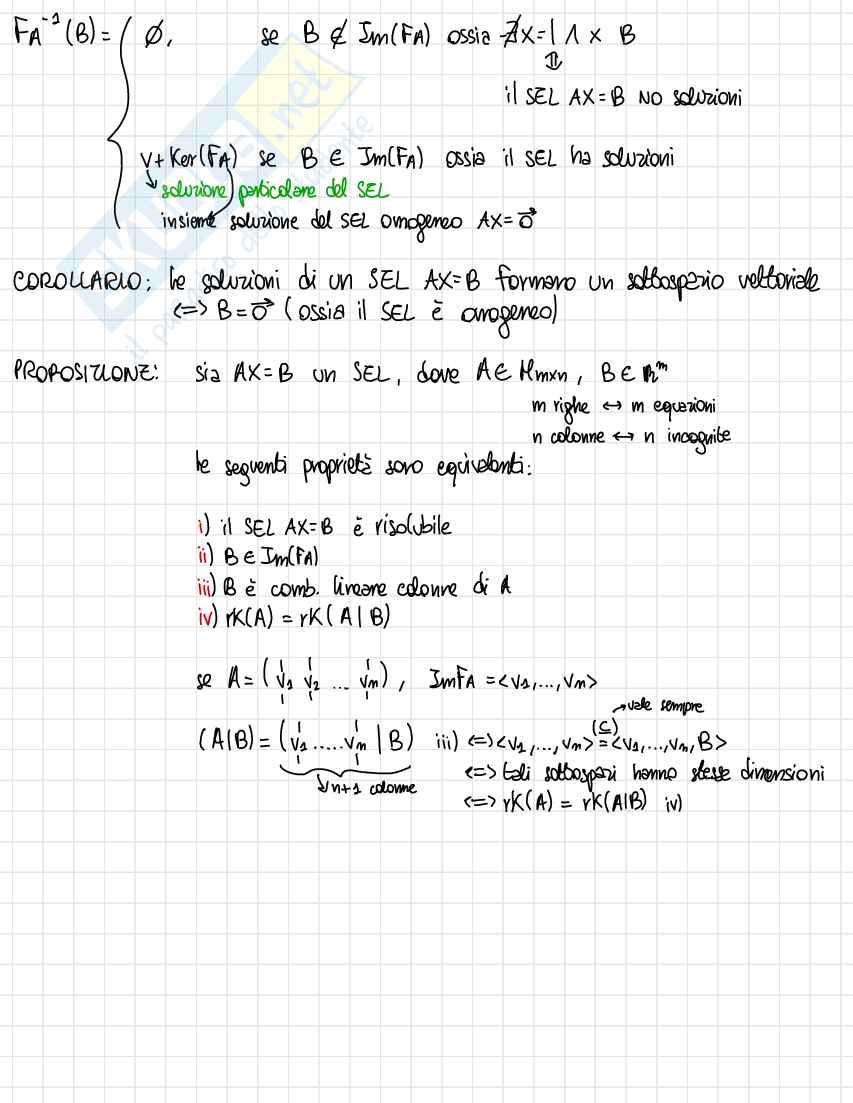 FA⁻¹(B) = { ∅, se B ∉ Im(FA) ossia ∄x=| Λ x B
⇕
il SEL AX=B NO soluzioni
v + Ker(FA) se B ∈ Im(FA) ossia il SEL ha soluzioni
↳ soluzione particolare del SEL
insieme soluzione del SEL omogeneo AX=0⃗
COROLLARIO: le soluzioni di un SEL AX=B formano un sottospazio vettoriale
<=> B=0⃗ (ossia il SEL è omogeneo)
PROPOSIZIONE: sia AX=B un SEL, dove A∈ Mmxn, B∈ ℝᵐ
m righe ↔ m equazioni
n colonne ↔ n incognite
le seguenti proprietà sono equivalenti:
i) il SEL AX=B è risolubile
ii) B∈Im(FA)
iii) B è comb. lineare colonne di A
iv) rK(A) = rK(A|B)
se A= (v1 v2 ... vm), ImFA =<v1,...,vm>
→ vale sempre
(⊆)
(A|B)= (v1.....vm | B) iii) <=> <v1,...,vm> = <v1,...,vm,B>
<=> tali sottospazi hanno stesse dimensioni
↳ n+1 colonne
<=> rK(A) = rK(A|B) iv)
SKUOLA.net
il paradiso dello studente